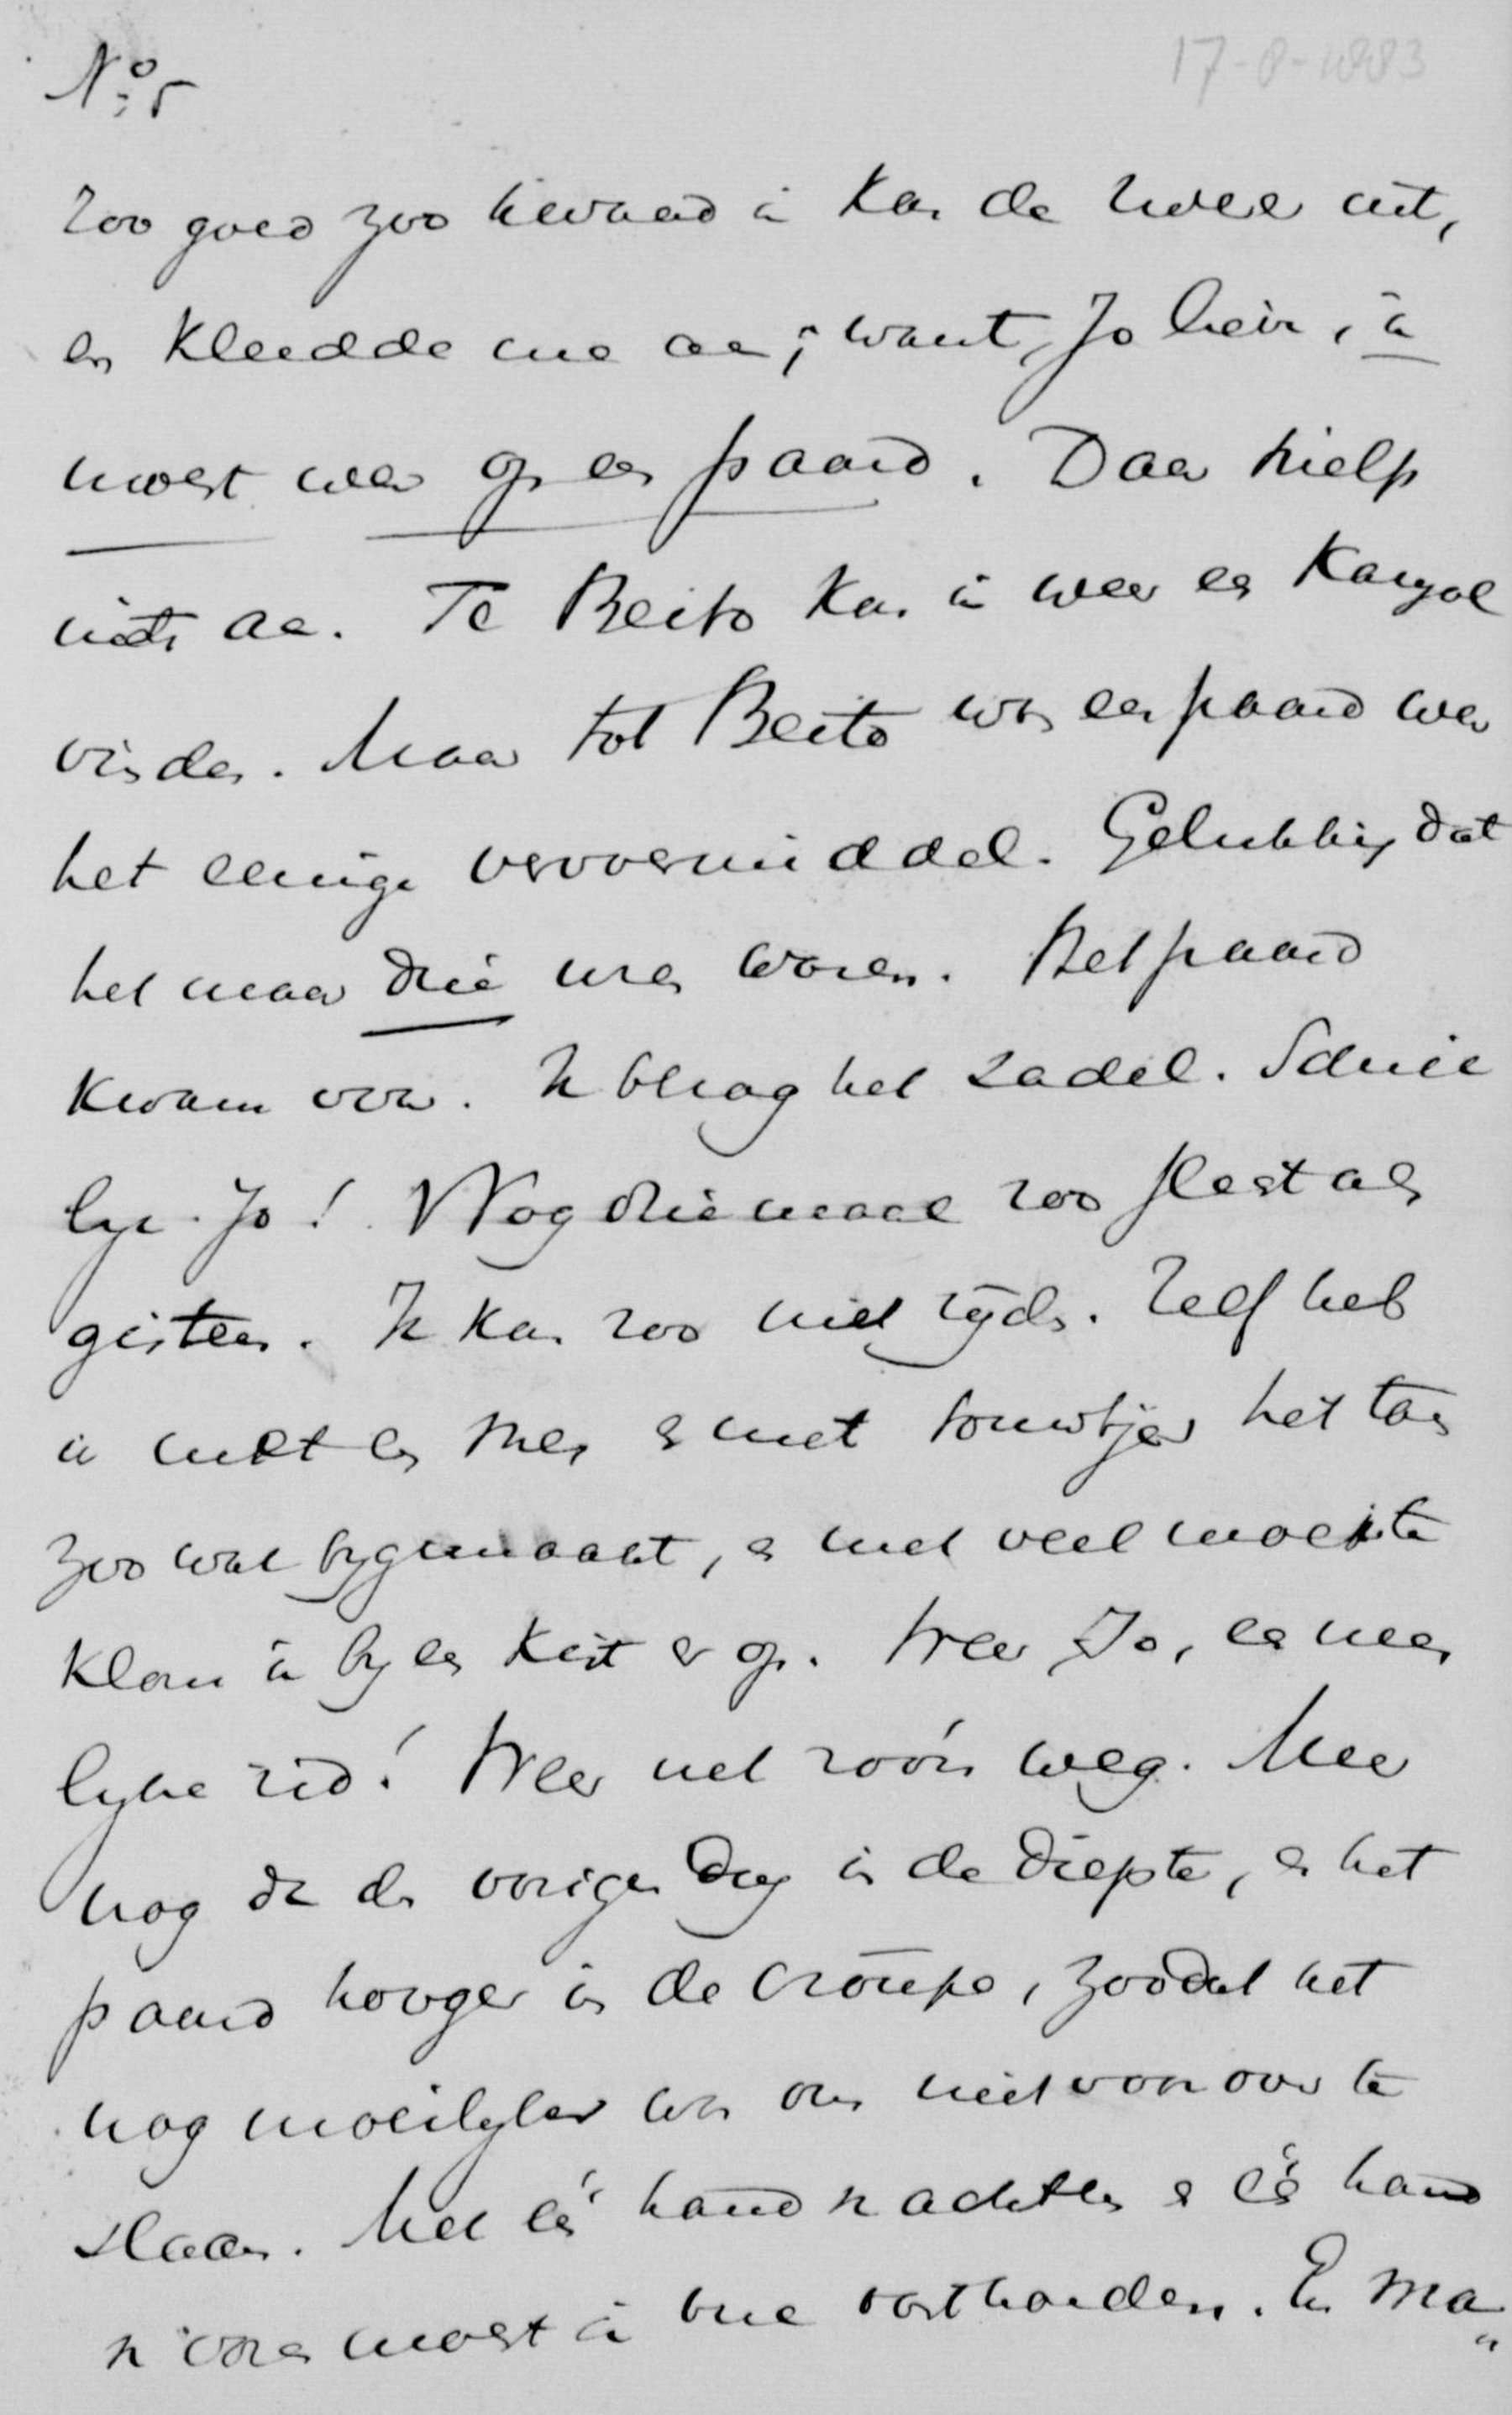 No: 5
17-8-1883
Zoo goed zoo kwaad ik kan de huure uit,
en kleedde me aan; want, Jo heir, ik
moest weer op een paard. Daar hielp
niets aan. Te Beito kan ik weer een Karyol
vinden. Maar tot Beito was een paard weer
het eenige vervoermiddel. Gelukkig dat
het maar drie uren waren. Het paard
kwam voor. Ik besag het zadel. Schrie
lyk Jo! Nog driemaal zoo slecht als
gisteren. Ik kan zoo niet ryden. Zelf heb
ik met een mes en met touwtjes het tag
zoo wat bygemaakt, en met veel moeite
klom ik by een kist er op. Weer Jo, een nees
lyke rid! Weer net zoo'n weg. Meer
nog dan den vorigen dag in de diepte, en het
paard hooger in de croupe, zoodat het
nog moeilyker was om niet voorover te
slaan. Met één hand van achteren en één hand
van voren moest ik me vasthouden. En ma„